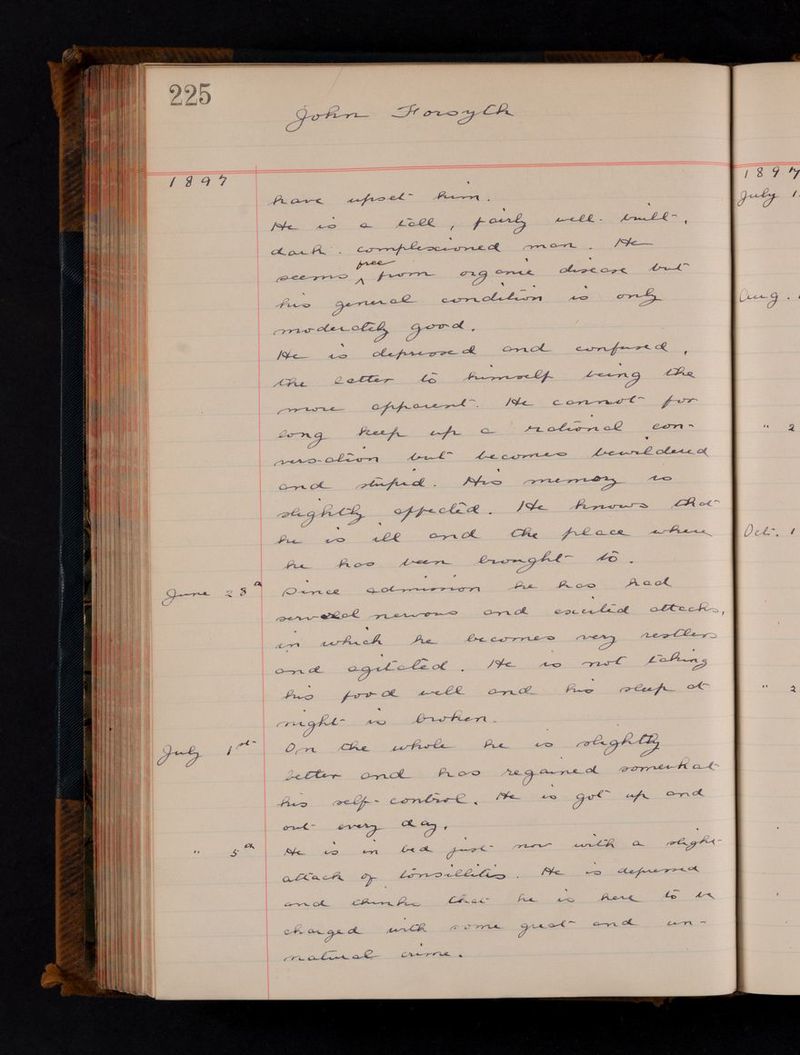 225
John Forsyth
1897
have upset him.
He is a tall, fairly well-built,
dark-complexioned man. He
seems ^free from organic disease but
his general condition is only
moderately good.
He is depressed and confused,
the latter to himself being the
more apparent. He cannot for
long keep up a rational con-
versation but becomes bewildered
and stupid. His memory is
slightly affected. He knows that
he is ill and the place where
he has been brought to.
June 28th Since admission he has had
several nervous and excited attacks,
in which he becomes very restless
and agitated. He is not taking
his food well and his sleep at
night is broken.
July 1st On the whole he is slightly
better and has regained somewhat
his self-control. He is got up and
out every day.
" 5th He is in bed just now with a slight
attack of tonsillitis. He is depressed
and thinks that he is here to be
charged with some great and un-
natural crime.
1897
July 1
Aug.
" 2
Oct. 1
" 2